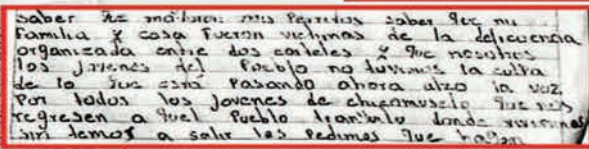 saber que mataron mis Perritos saber que mi
Familia y casa Fueron victimas de la delicuencia
organizada entre dos carteles y que nosotros
los Jovenes del Pueblo no tuvimos la culpa
de lo que está Pasando ahora alzo la voz
Por todos los Jovenes de chicomuselo que nos
regresen a quel Pueblo tranquilo donde viviamos
sin temor a salir les Pedimos que hagan